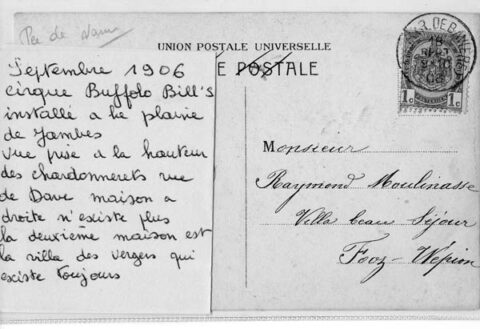 Pce de Namur
UNION POSTALE UNIVERSELLE
E POSTALE
1c 1c
Septembre 1906
cirque Buffolo Bill's
installé a la plaine
de Jambes
Vue prise a la hauteur
des chardonnerets rue
de Dave maison a
droite n'existe plus
la deuxième maison est
la villa des vergers qui
existe toujours
Monsieur
Raymond Moulinasse
Villa beau Séjour
Fooz-Wépion